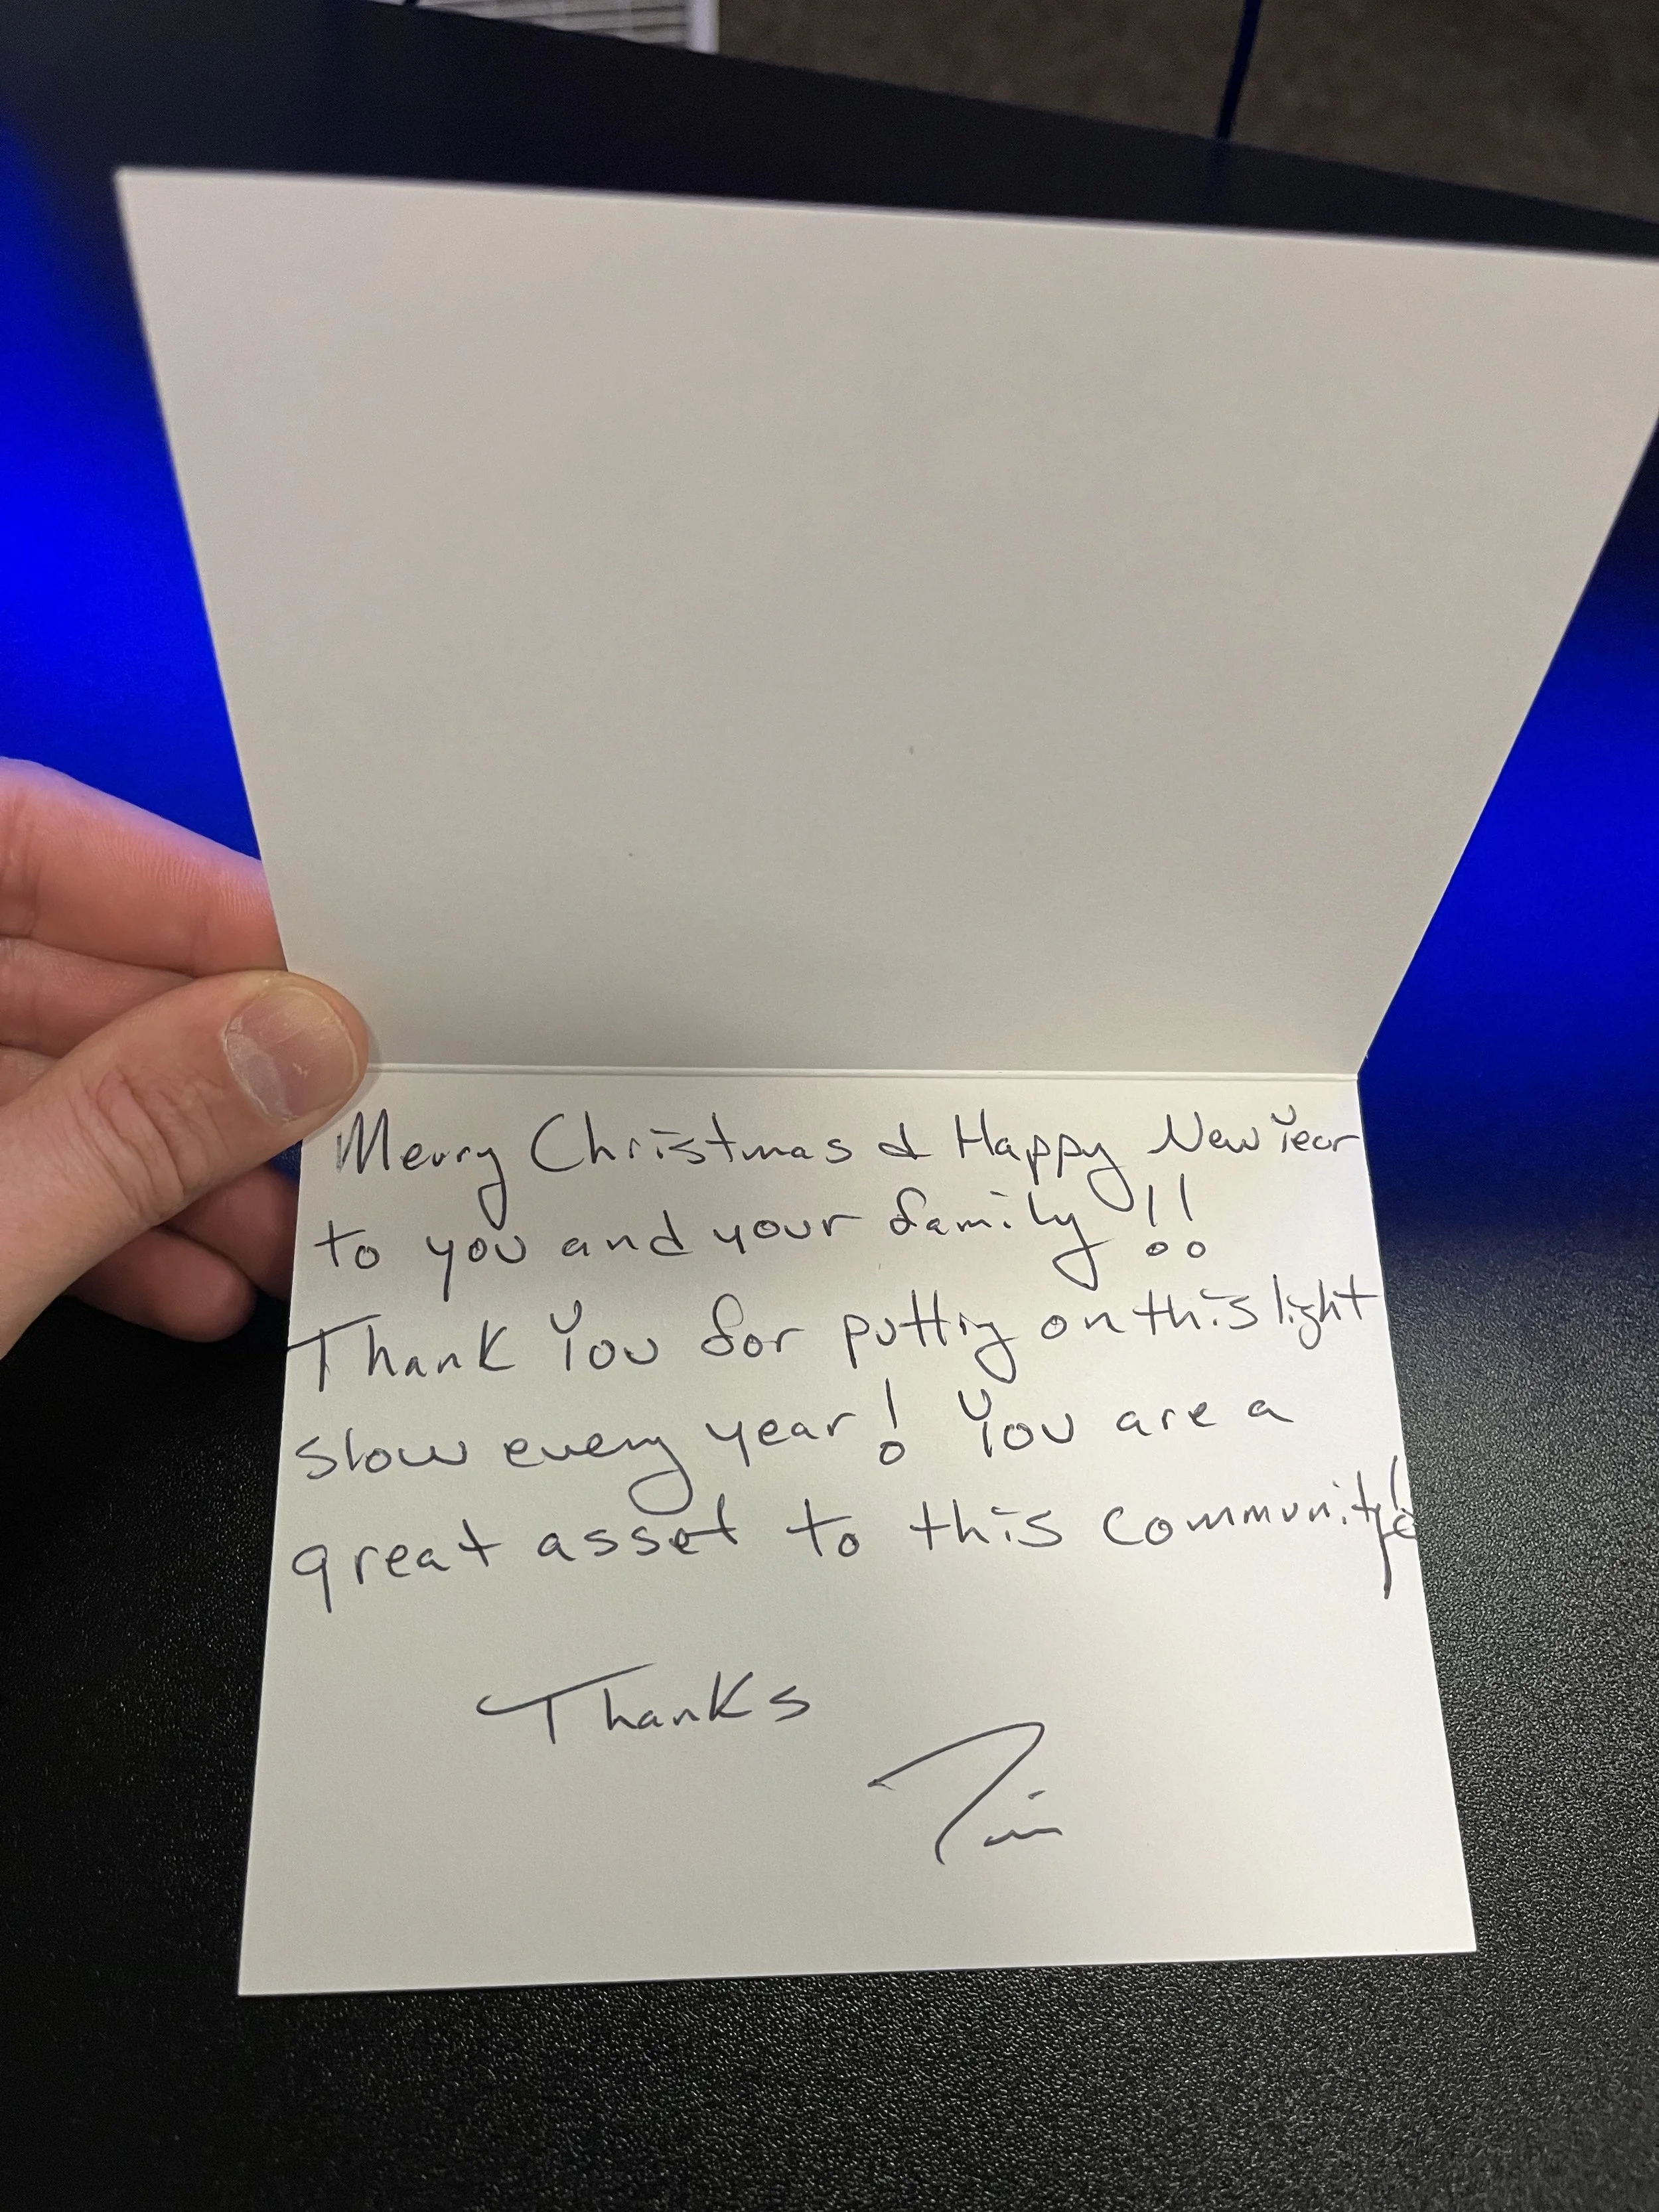 Merry Christmas & Happy New Year
to you and your family!!
Thank You for putting on this light
slow every year! You are a
great asset to this community!
Thanks
Tim